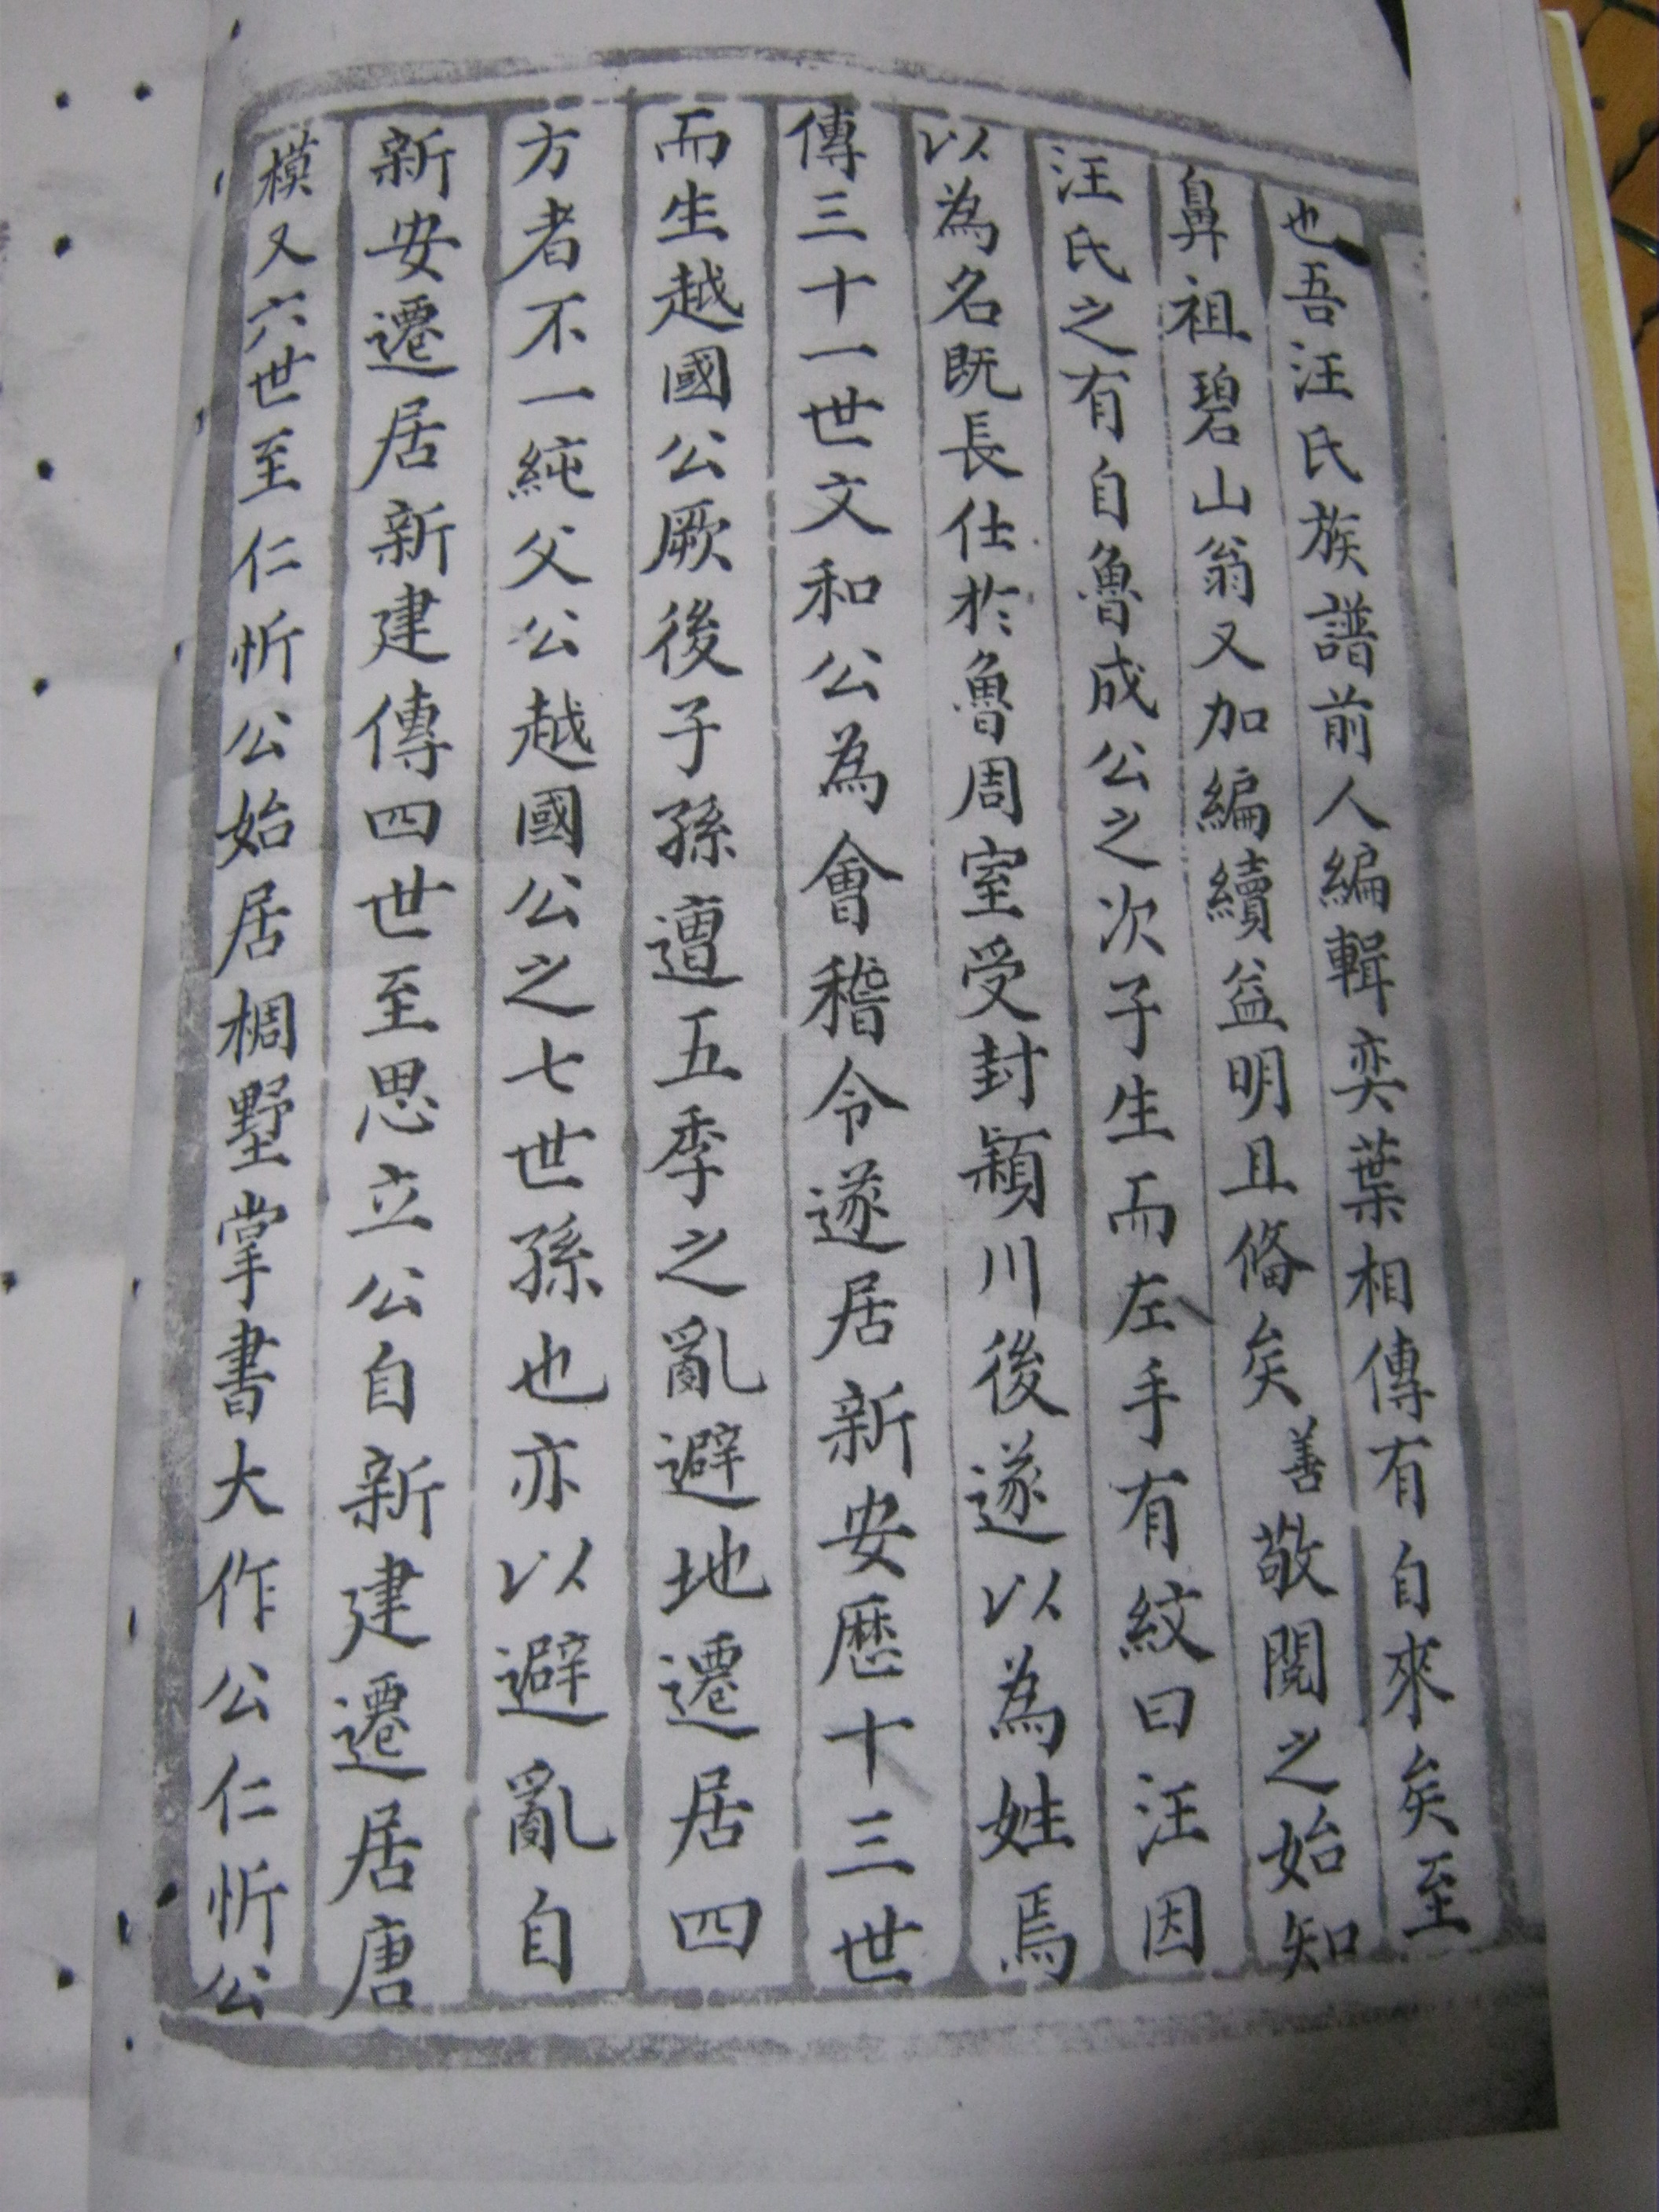 也吾汪氏族譜前人編輯奕葉相傳有自來矣至
鼻祖碧山翁又加編續益明且俻矣善敬閱之始知
汪氏之有自魯成公之次子生而左手有紋曰汪因
以為名既長仕於魯周室受封潁川後遂以為姓焉
傳三十一世文和公為會稽令遂居新安歷十三世
而生越國公厥後子孫遭五季之亂避地遷居四
方者不一純父公越國公之七世孫也亦以避亂自
新安遷居新建傳四世至思立公自新建遷居唐
模又六世至仁忻公始居椆墅掌書大作公仁忻公